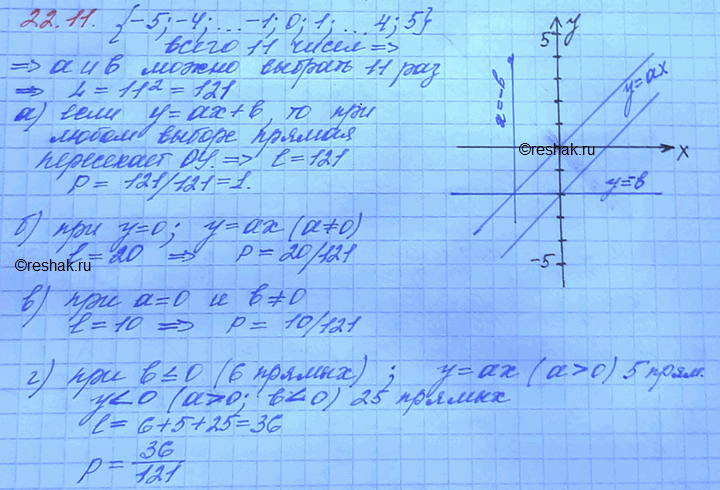 22.11. {-5; -4; ... -1; 0; 1; ... 4; 5}
всего 11 чисел =>
=> a и b можно выбрать 11 раз
=> L = 11² = 121
а) если y = ax + b, то при
любом выборе прямая
пересекает OY. => l = 121
P = 121/121 = 1.
б) при y=0; y = ax (a≠0)
l = 20 => P = 20/121
©reshak.ru
в) при a=0 и b≠0
l = 10 => P = 10/121
г) при b≤0 (6 прямых); y = ax (a>0) 5 прям.
y<0 (a>0; b<0) 25 прямых
l = 6+5+25 = 36
P = 36/121
5
y
x=-b
y=ax
©reshak.ru
x
y=b
-5